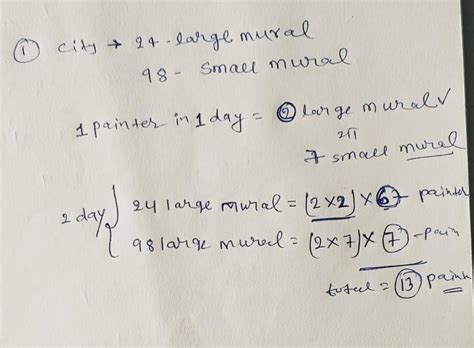 ① City → 24 - large mural
98 - Small mural
1 painter in 1 day = ② large mural ✓
7 small mural
2 day } 24 large mural = (2×2)×6 painter
98 large mural = (2×7)×⑦ - pain
total = ⑬ paint